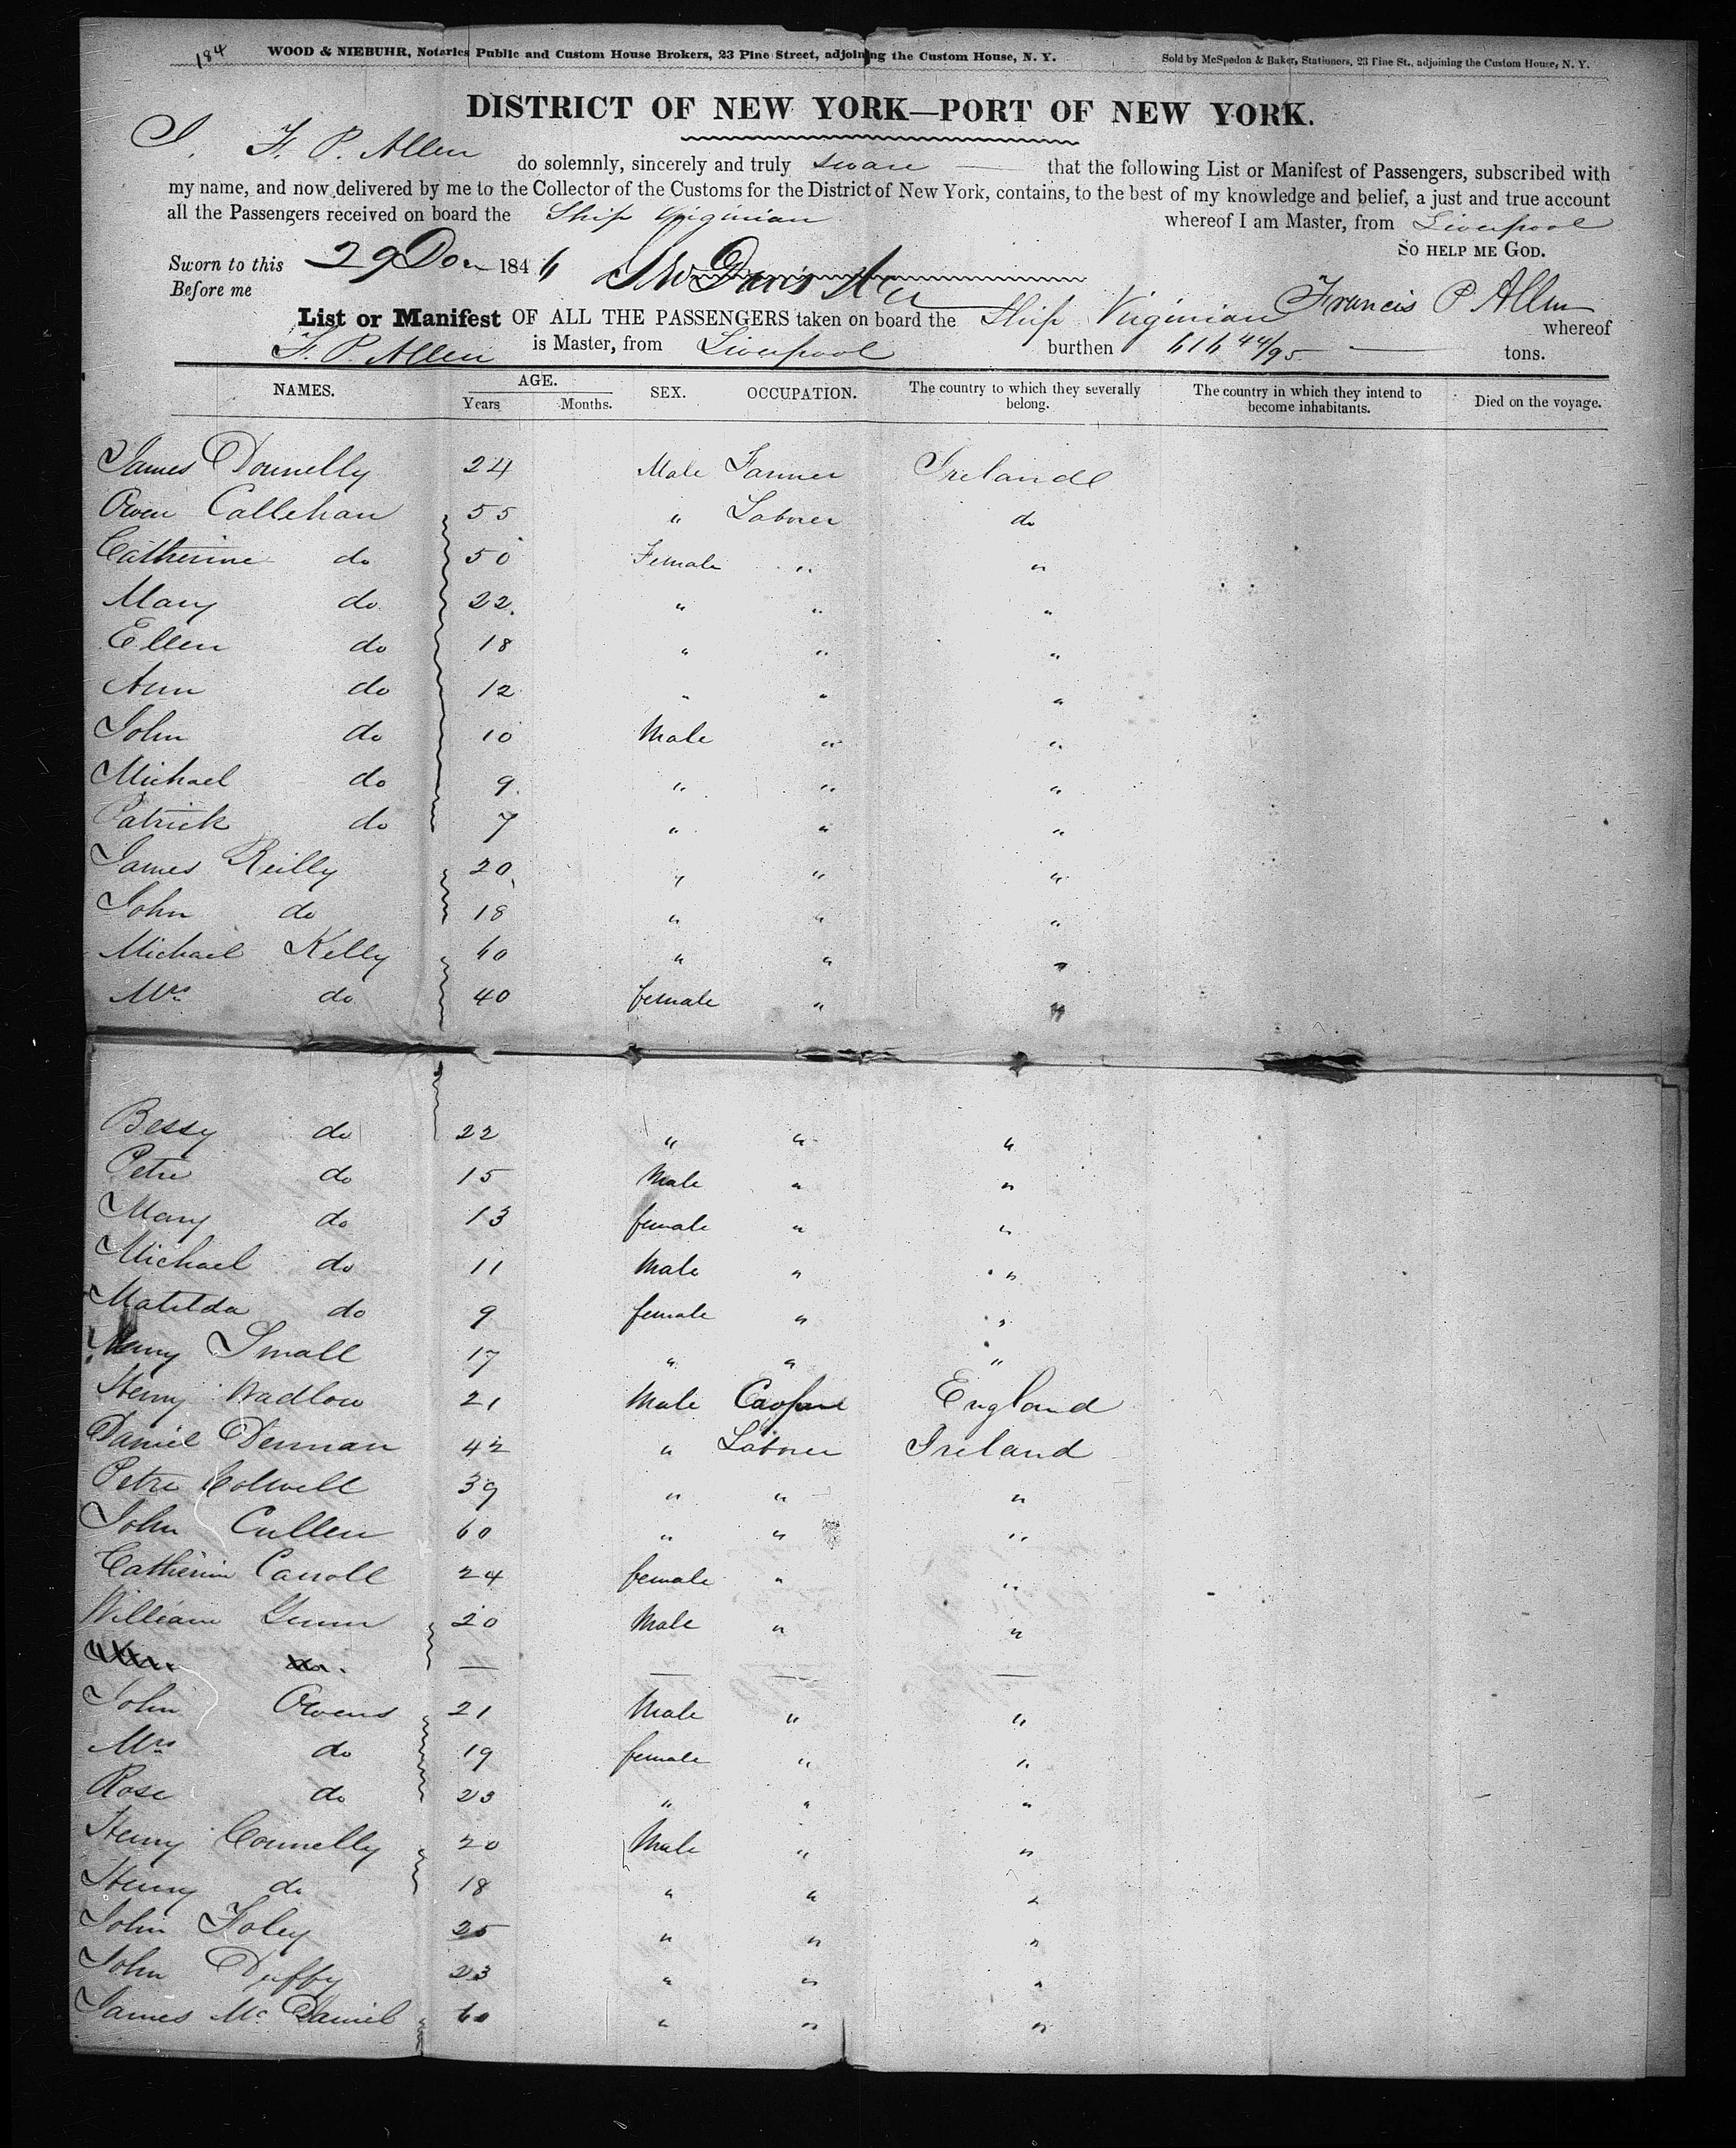 184
WOOD & NIEBUHR, Notaries Public and Custom House Brokers, 23 Pine Street, adjoining the Custom House, N. Y.
Sold by McSpedon & Baker, Stationers, 23 Pine St., adjoining the Custom House, N. Y.
DISTRICT OF NEW YORK—PORT OF NEW YORK.
I, F. P. Allen do solemnly, sincerely and truly swear that the following List or Manifest of Passengers, subscribed with
my name, and now delivered by me to the Collector of the Customs for the District of New York, contains, to the best of my knowledge and belief, a just and true account
all the Passengers received on board the Ship Virginian whereof I am Master, from Liverpool
SO HELP ME GOD.
Sworn to this 29 Dec 1846
Before me
Francis P Allen
List or Manifest OF ALL THE PASSENGERS taken on board the Ship Virginian whereof
F. P. Allen is Master, from Liverpool burthen 616 44/95 tons.
NAMES. AGE. SEX. OCCUPATION. The country to which they severally belong. The country in which they intend to become inhabitants. Died on the voyage.
Years Months.
James Donnelly 24 Male Farmer Ireland
Owen Callehan 55 " Laborer do
Catherine do 50 Female " "
Mary do 22 " " "
Ellen do 18 " " "
Ann do 12 " " "
John do 10 Male " "
Michael do 9 " " "
Patrick do 7 " " "
James Reilly 20 " " "
John do 18 " " "
Michael Kelly 60 " " "
Mrs do 40 female " "
Bessy do 22 " " "
Peter do 15 Male " "
Mary do 13 female " "
Michael do 11 Male " "
Matilda do 9 female " "
Mary Small 17 " " "
Henry Wadlow 21 Male England
Daniel Dennan 42 " Laborer Ireland
Peter Colwell 39 " " "
John Cullen 60 " " "
Catherine Carroll 24 female " "
William 20 Male " "
John Owens 21 Male " "
Mrs do 19 female " "
Rose do 23 " " "
Henry Connelly 20 Male " "
Henry do 18 " " "
John Foley 25 " " "
John Duffy 23 " " "
James Mc Daniel 60 " " "